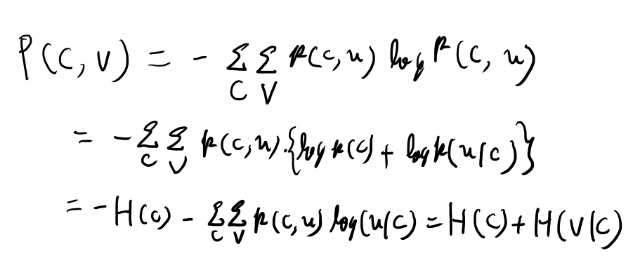 P(C, V) = - Σ_C Σ_V p(c,u) log P(c, u)
= - Σ_C Σ_V p(c,u).{log p(c) + log p(u/c)}
= - H(c) - Σ_C Σ_V p(c,u) log(u/c) = H(C) + H(V/C)